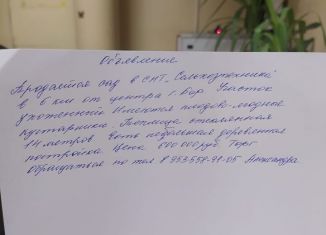 Объявление
Продаётся сад в СНТ "Сельхозтехника"
в 6 км от центра г. Бор Участок
ухоженный Имеются плодово-ягодные
кустарники. Теплица стеклянная
14 метров Есть небольшая деревянная
постройка Цена 600 000 руб Торг
Обращаться по тел 8 953 558-91-05 Александра